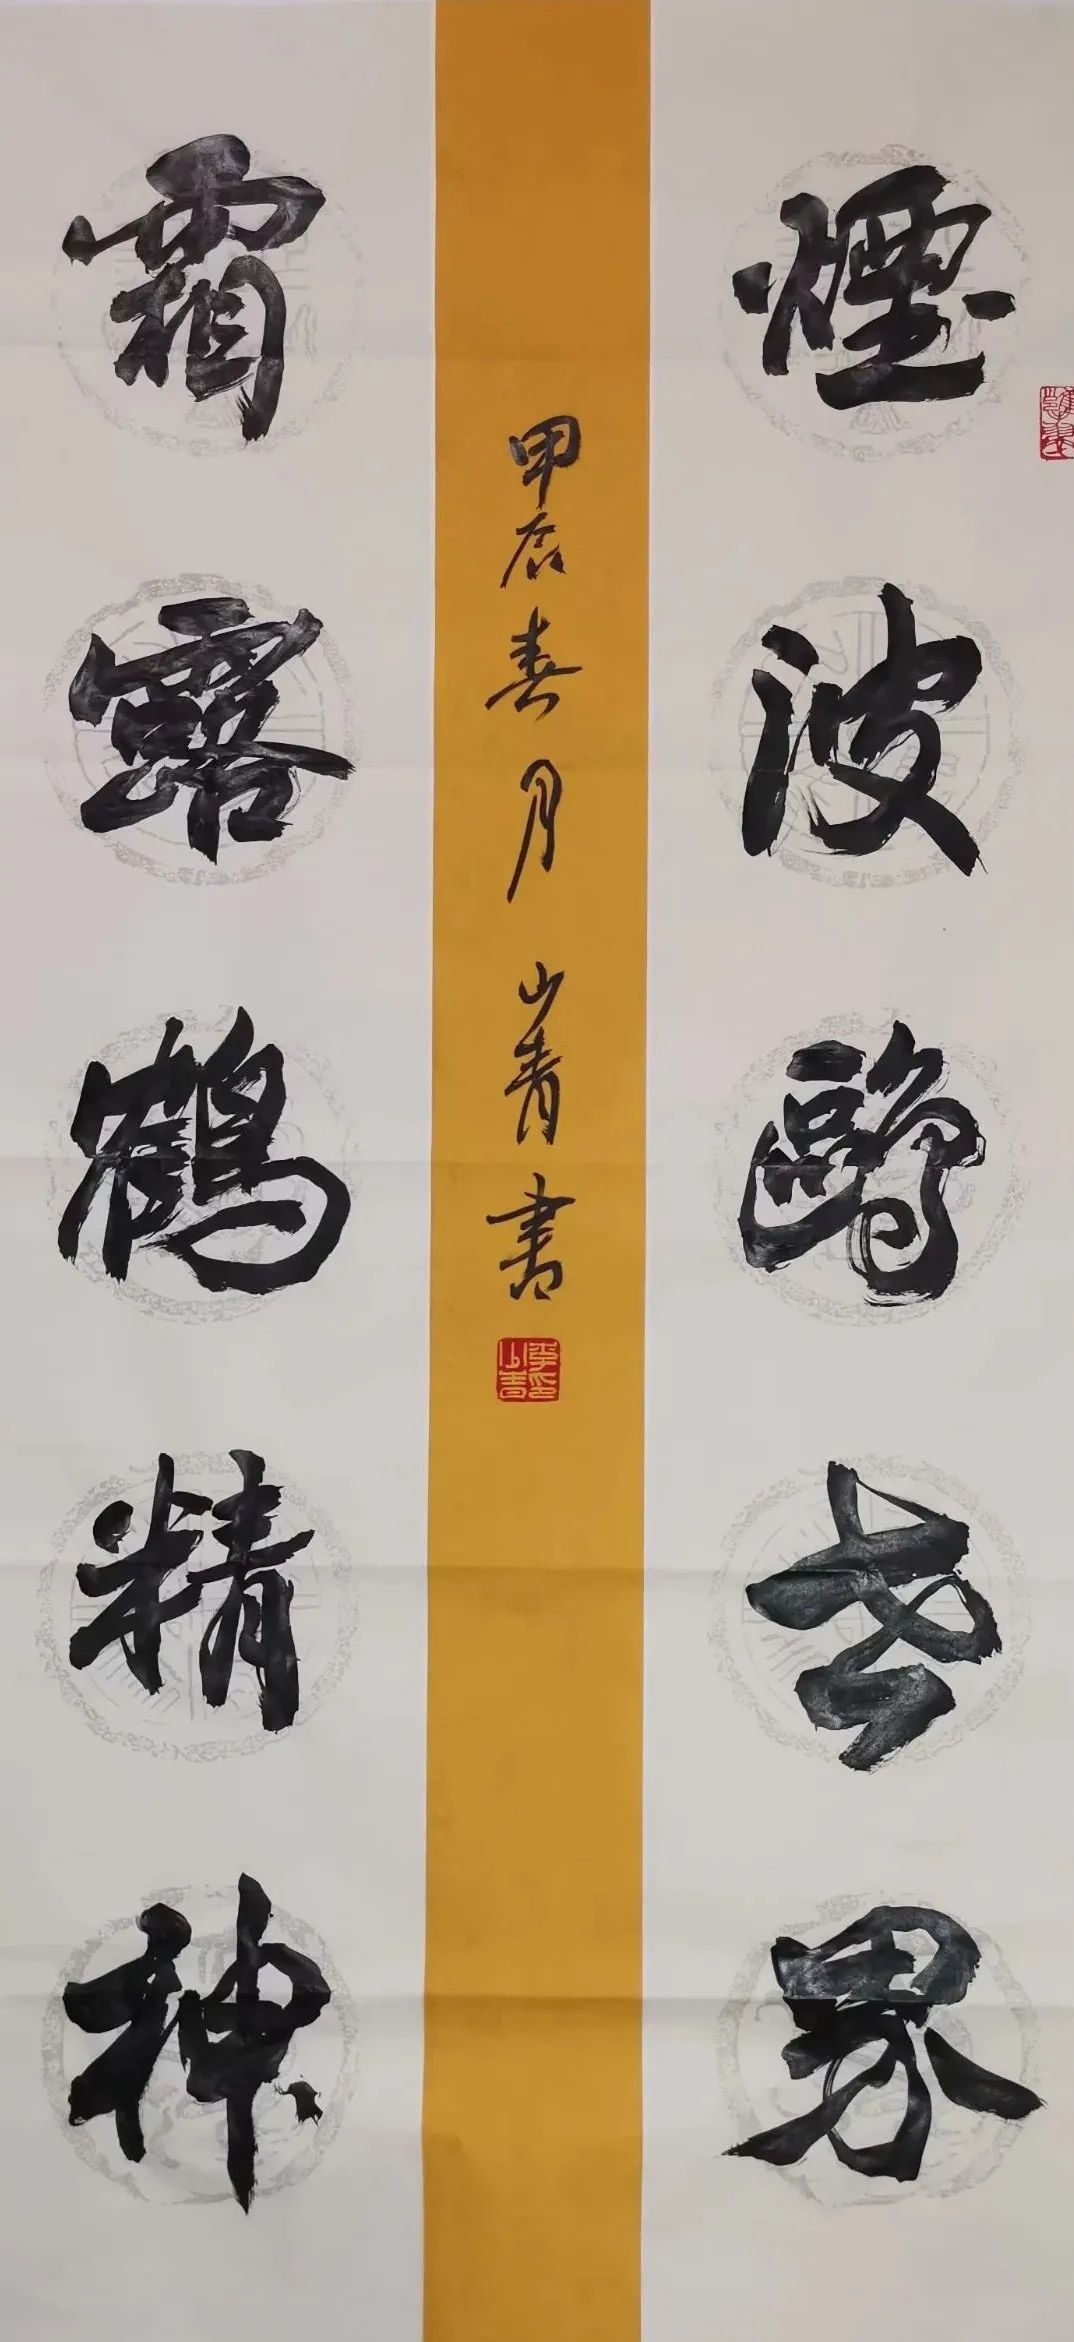 煙波鷗世界
霜露鶴精神
甲辰春月 山青書
李山青印